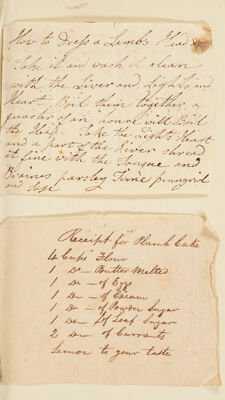 How to Dress a Lambs Head
Take it and wash it clean
with the Liver and Lights and
Heart Boil them together a
quarter of an houre will Boil
the Heart - Take the Lights Heart
and a part of the Liver shred
it fine with the Tongue and
Braines parsley Time
and
Receipt for Plumb Cake
4 Cups Flour
1 Do - Butter Melted
1 Do - of Egg
1 Do - of Cream
1 Do - of Powder Sugar
1 Do - of Loaf Sugar
2 Do - of Currants
Lemon to your taste